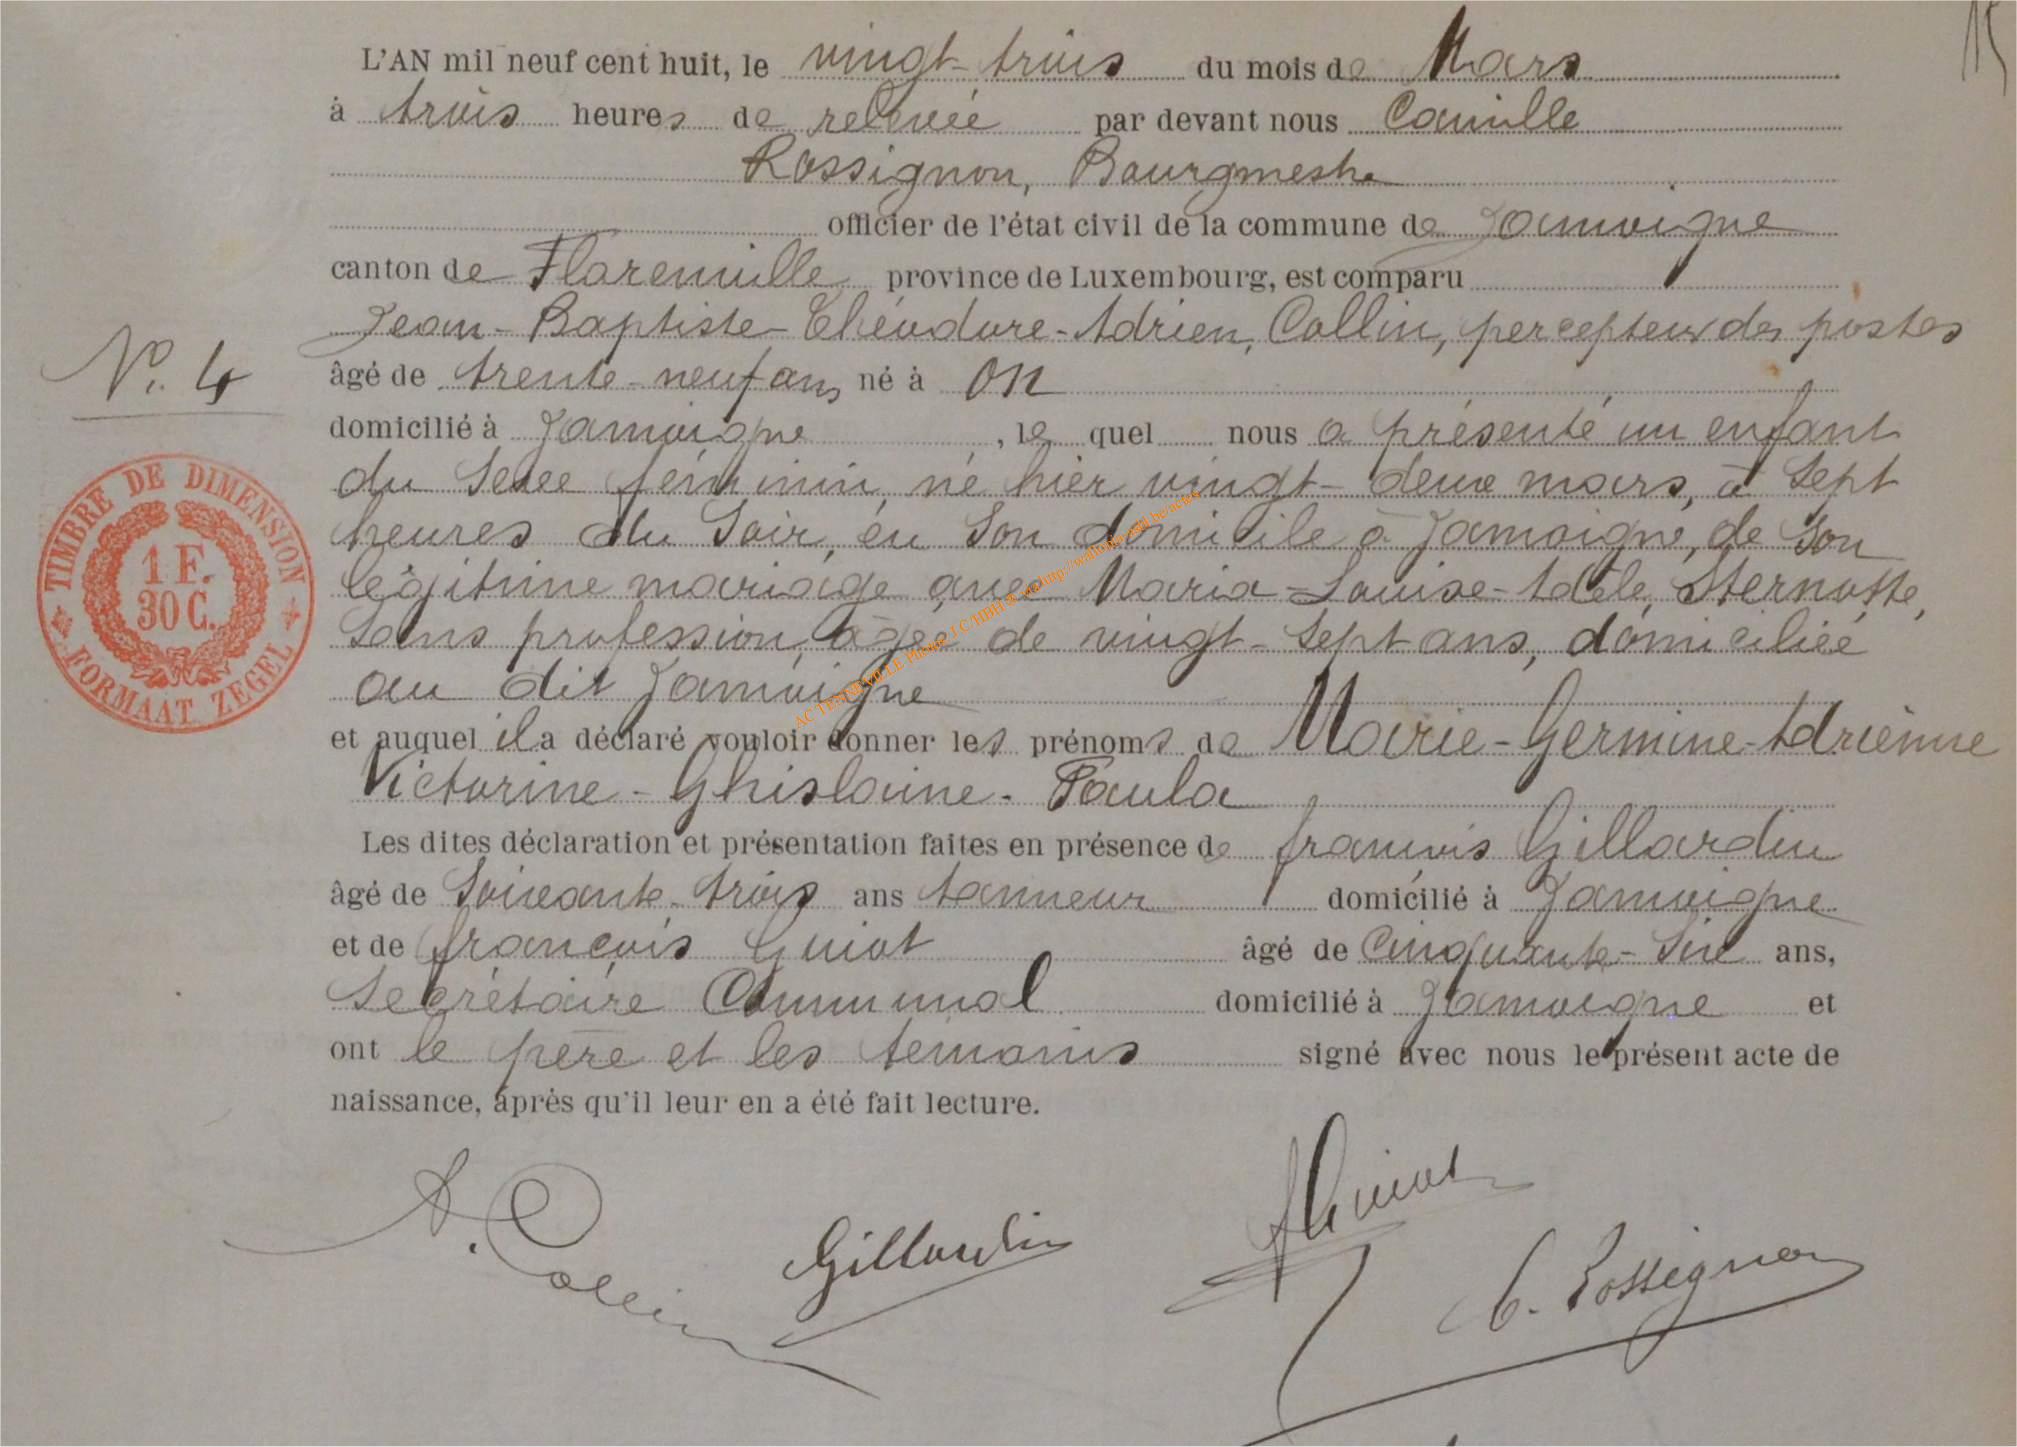 15
L'AN mil neuf cent huit, le vingt-trois du mois de Mars
à trois heures de relevée par devant nous Camille
Rossignon, Bourgmestre
officier de l'état civil de la commune de Jamoigne
canton de Florenville province de Luxembourg, est comparu
Jean-Baptiste-Théodore-Adrien, Collin, percepteur des postes
N°. 4
âgé de trente-neuf ans né à On
domicilié à Jamoigne, le quel nous a présenté un enfant
du Sexe féminin, né hier vingt-deux mars, à Sept
heures du Soir, en Son domicile à Jamoigne, de Son
légitime mariage avec Maria-Louise-Adèle, Sternotte,
Sans profession, âgée de vingt-Sept ans, domiciliée
au dit Jamoigne
et auquel il a déclaré vouloir donner les prénoms de Marie-Germine-Adrienne
Victorine-Ghislaine-Paula
Les dites déclaration et présentation faites en présence de françois Gillardin
âgé de Soixante-trois ans tanneur domicilié à Jamoigne
et de françois Guiot âgé de Cinquante-Six ans,
Secrétaire Communal domicilié à Jamoigne et
ont le père et les témoins signé avec nous le présent acte de
naissance, après qu'il leur en a été fait lecture.
TIMBRE DE DIMENSION
1 F.
30 C.
FORMAAT ZEGEL
A. Collin
Gillardin
f Guiot
C. Rossignon